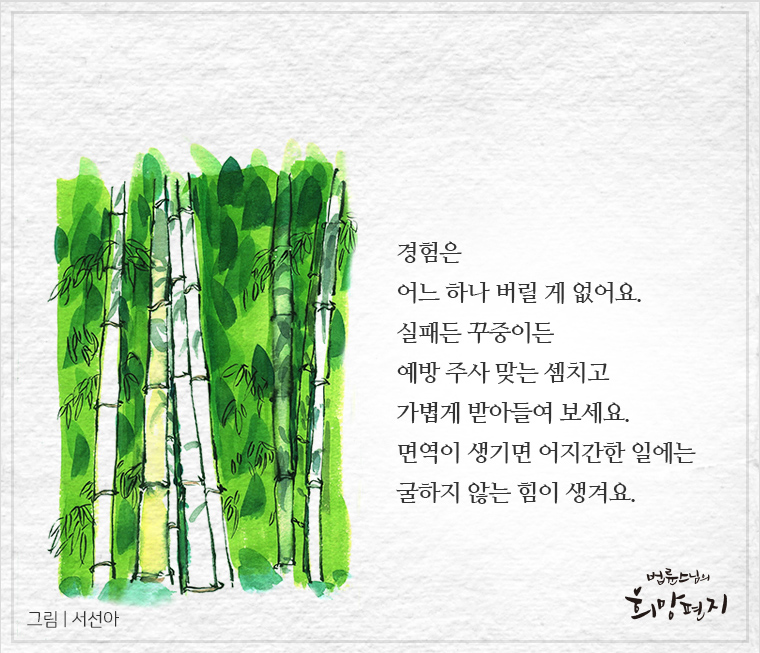 경험은
어느 하나 버릴 게 없어요.
실패든 꾸중이든
예방 주사 맞는 셈치고
가볍게 받아들여 보세요.
면역이 생기면 어지간한 일에는
굴하지 않는 힘이 생겨요.
그림 | 서선아
법륜스님의
희망편지